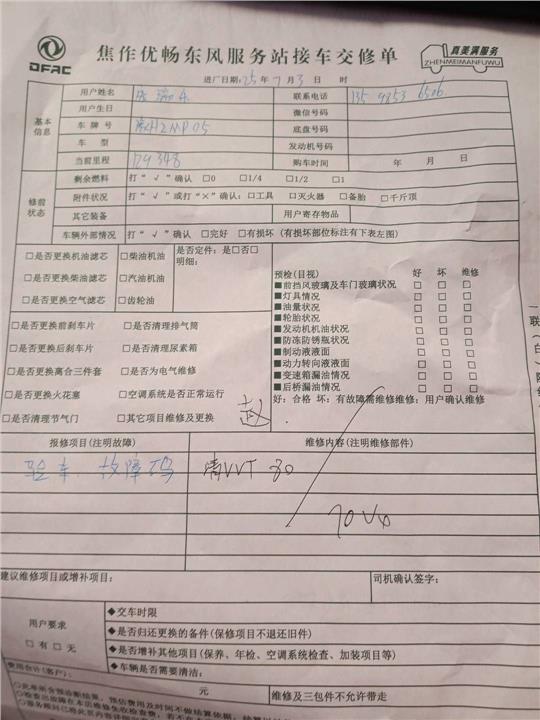 DFAC
焦作优畅东风服务站接车交修单
真美满服务
ZHENMEIMANFUWU
进厂日期:25年7月3日 时
基本信息
用户姓名
联系电话 135 9853 6506
用户生日
微信号码
车牌号 豫H2MP05
底盘号码
车 型
发动机号码
当前里程 129348
购车时间 年 月 日
修前状态
剩余燃料 打“√”确认 □0 □1/4 □1/2 □1
附件状况 打“√”或打“×”确认:□工具 □灭火器 □备胎 □千斤顶
其它装备
用户寄存物品
车辆外部情况 打“√”确认 □完好 □有损坏 (有损坏部位标注有下表左图)
□是否更换机油滤芯 □柴油机油
□是否更换柴油滤芯 □汽油机油
□是否更换空气滤芯 □齿轮油
是否定件: 是□否□
明细:
□是否更换前刹车片 □是否清理排气筒
□是否更换后刹车片 □是否清理尿素箱
□是否更换离合三件套 □是否为电气维修
□是否更换火花塞 □空调系统是否正常运行
□是否清理节气门 □其它项目维修及更换
赵
预检(目视) 好 坏 维修
■前挡风玻璃及车门玻璃状况 □ □ □
■灯具情况 □ □ □
■油量状况 □ □ □
■轮胎状况 □ □ □
■发动机机油状况 □ □ □
■防冻防锈瓶状况 □ □ □
■制动液液面 □ □ □
■动力转向液液面 □ □ □
■变速箱漏油情况 □ □ □
■后桥漏油情况 □ □ □
好:合格 坏:有故障需维修维修:用户确认维修
报修项目(注明故障)
维修内容(注明维修部件)
验车. 故障码
清VVT 30
建议维修项目或增补项目:
司机确认签字:
用户要求
□有 □无
◆交车时限
◆是否归还更换的备件(保修项目不退还旧件)
◆是否增补其他项目(保养、年检、空调系统检查、加装项目等)
◆车辆是否需要清洁:
费用合计(客户):
元
维修及三包件不允许带走